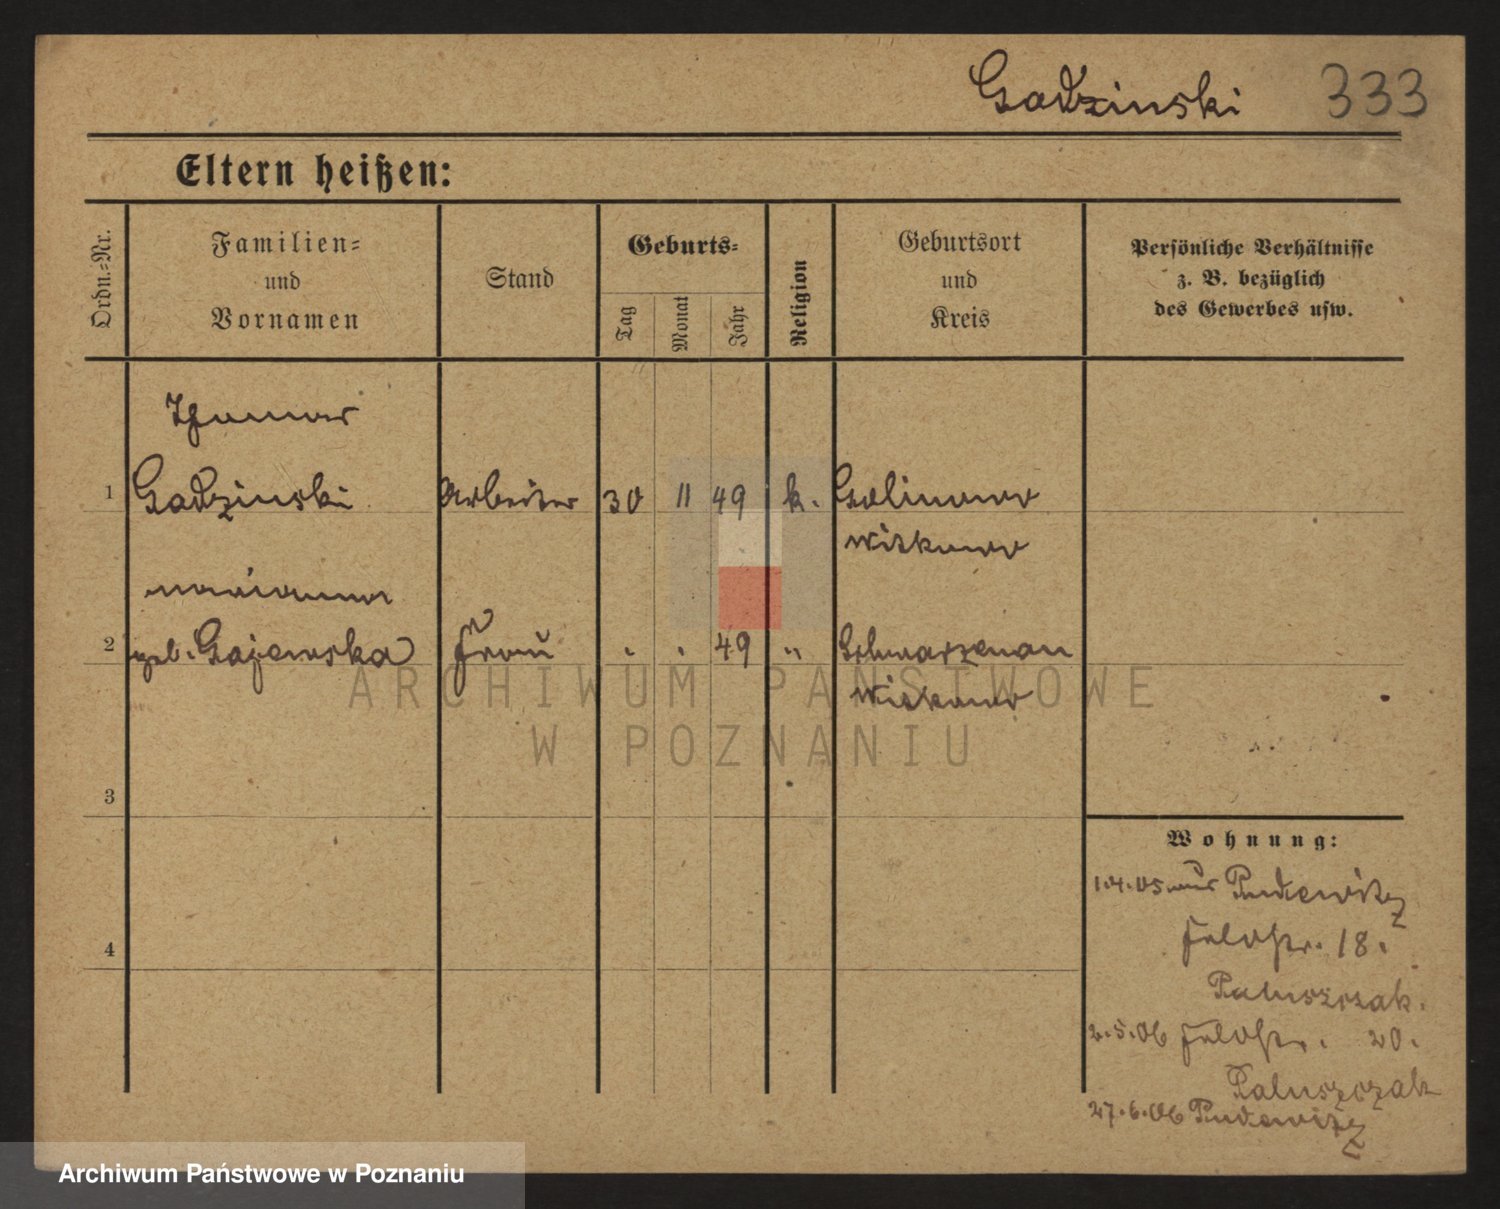 Gadzinski 333
Eltern heißen:
Ordn.=Nr.
Familien=
und
Vornamen
Stand
Geburts=
Tag
Monat
Jahr
Religion
Geburtsort
und
Kreis
Persönliche Verhältnisse
z. B. bezüglich
des Gewerbes usw.
Thomas
1 Gadzinski Arbeiter 30 11 49 k. Golimowo
Witkowo
Marianna
2 geb. Gajewska Frau 49 " Schwarzenau
Witkowo
ARCHIWUM PAŃSTWOWE
W POZNANIU
3
Wohnung:
1.4.05 aus Pudewitz
4
Feldstr. 18.
Paluszczak.
2.5.06 Feldstr. 20.
Paluszczak
27.6.06 Pudewitz
Archiwum Państwowe w Poznaniu